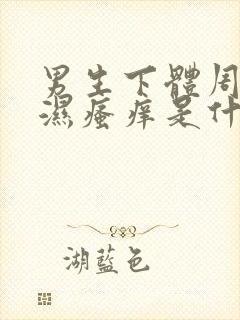 男生下體周
濕瘙痒是什
湖藍色